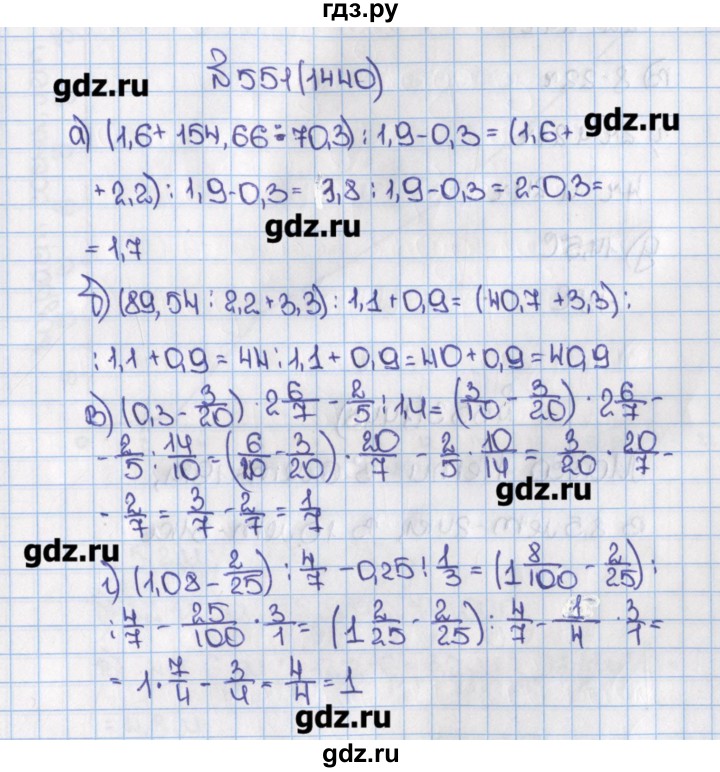 гдз.ру
№551(1440)
gdz.ru
а) (1,6+154,66:70,3):1,9-0,3=(1,6+
gdz.ru
+2,2):1,9-0,3=3,8:1,9-0,3=2-0,3=
gdz.ru
=1,7
б) (89,54:2,2+3,3):1,1+0,9=(40,7+3,3):
:1,1+0,9=44:1,1+0,9=40+0,9=40,9
в) (0,3-3/20)·2 6/7-2/5:1,4=(3/10-3/20)·2 6/7-
-2/5:14/10=(6/20-3/20)·20/7-2/5·10/14=3/20·20/7-
gdz.ru
-2/7=3/7-2/7=1/7
gdz.ru
г) (1,08-2/25):4/7-0,25:1/3=(1 8/100-2/25):
:4/7-25/100·3/1=(1 2/25-2/25):4/7-1/4·3/1=
=1·7/4-3/4=4/4=1
gdz.ru
gdz.ru